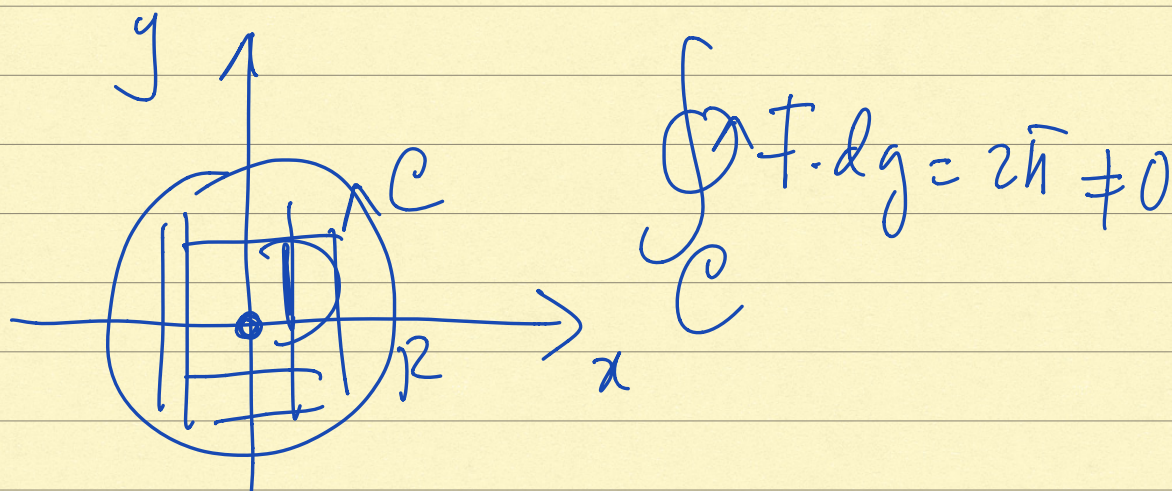 y
C
D
R
x
∮_C F · dg = 2π ≠ 0